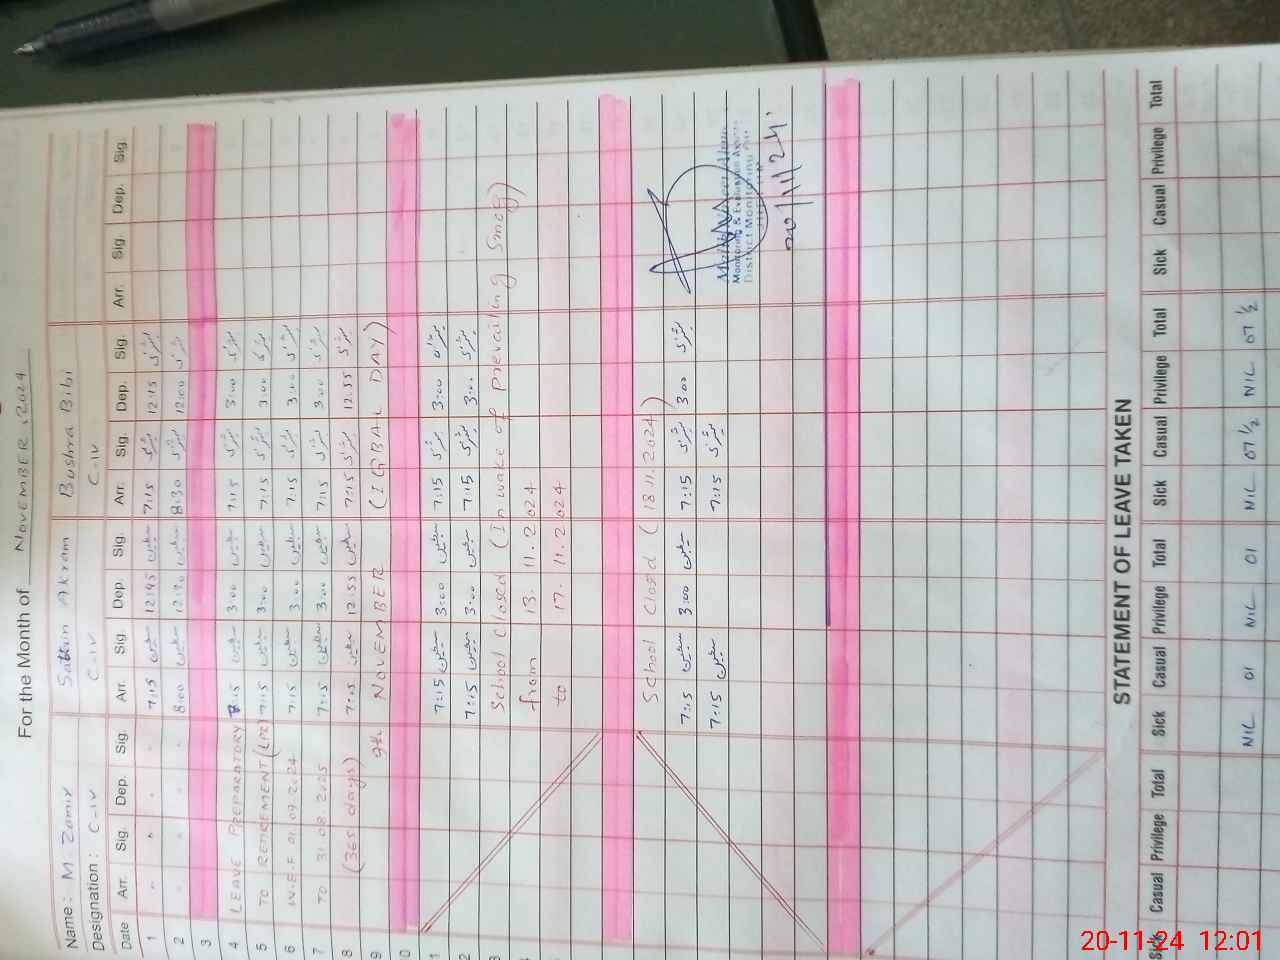 For the Month of NOVEMBER, 2024
Name: M. Zamir Akram Bushra Bibi
Designation: C-IV C-IV C-IV
Date Arr. Sig. Dep. Sig. Arr. Sig. Dep. Sig. Arr. Sig. Dep. Sig. Arr. Sig. Dep. Sig.
1 7:15 12:45 7:15 بشریٰ 12:15 بشریٰ
2 8:00 8:30 بشریٰ 12:00 بشریٰ
3
4 LEAVE PREPARATORY 7:15 3:00 7:15 بشریٰ 3:00 بشریٰ
5 TO RETIREMENT (LPR) 7:15 3:00 7:15 بشریٰ 3:00 بشریٰ
6 W.E.F 01.09.2024 7:15 3:00 7:15 بشریٰ 3:00 بشریٰ
7 TO 31.08.2025 7:15 3:00 7:15 بشریٰ 3:00 بشریٰ
8 (365 days) 7:15 12:55 7:15 بشریٰ 12:55 بشریٰ
9 9th NOVEMBER (IQBAL DAY)
10
1 7:15 3:00 7:15 بشریٰ 3:00 بشریٰ
2 7:15 3:00 7:15 بشریٰ 3:00 بشریٰ
3 School Closed (In wake of prevailing Smog)
from 13.11.2024
to 17.11.2024
School Closed (18.11.2024)
7:15 3:00 7:15 بشریٰ 3:00 بشریٰ
7:15 7:15 بشریٰ
Monitoring & Evaluation
District Monitoring
20/11/24
STATEMENT OF LEAVE TAKEN
Sick Casual Privilege Total Sick Casual Privilege Total Sick Casual Privilege Total Sick Casual Privilege Total
NIL 01 NIL 01 NIL 07 1/2 NIL 07 1/2
20-11-24 12:01